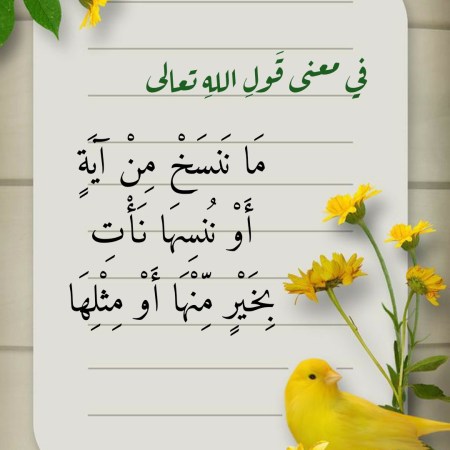 في معنى قَولِ اللهِ تعالى
مَا نَنسَخْ مِنْ آيَةٍ
أَوْ نُنسِهَا نَأْتِ
بِخَيْرٍ مِّنْهَا أَوْ مِثْلِهَا